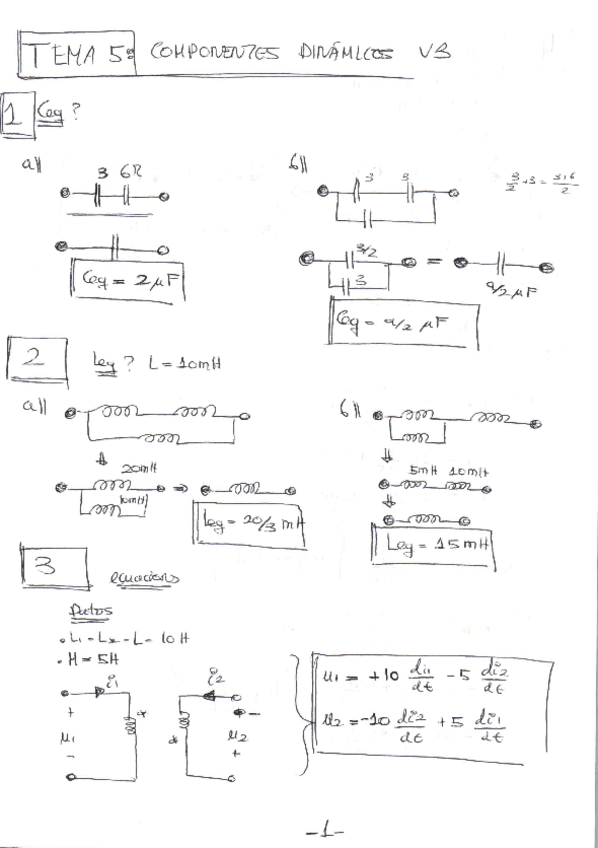 TEMA 5: COMPONENTES DINÁMICOS V3
1 Ceq?
a||
3 6
Ceq = 2 μF
b||
3 3
3/2 + 3 = 3+6/2
3/2
3
=
9/2 μF
Ceq = 9/2 μF
2 Leq? L = 10mH
a||
20mH
10mH
⇒
Leq = 20/3 mH
b||
5mH 10mH
Leq = 15 mH
3 ecuacions
Datos
• L1 = L2 = L = 10 H
• M = 5H
i1 i2
+ -
u1 u2
- +
u1 = +10 di1/dt - 5 di2/dt
u2 = -10 di2/dt + 5 di1/dt
-1-